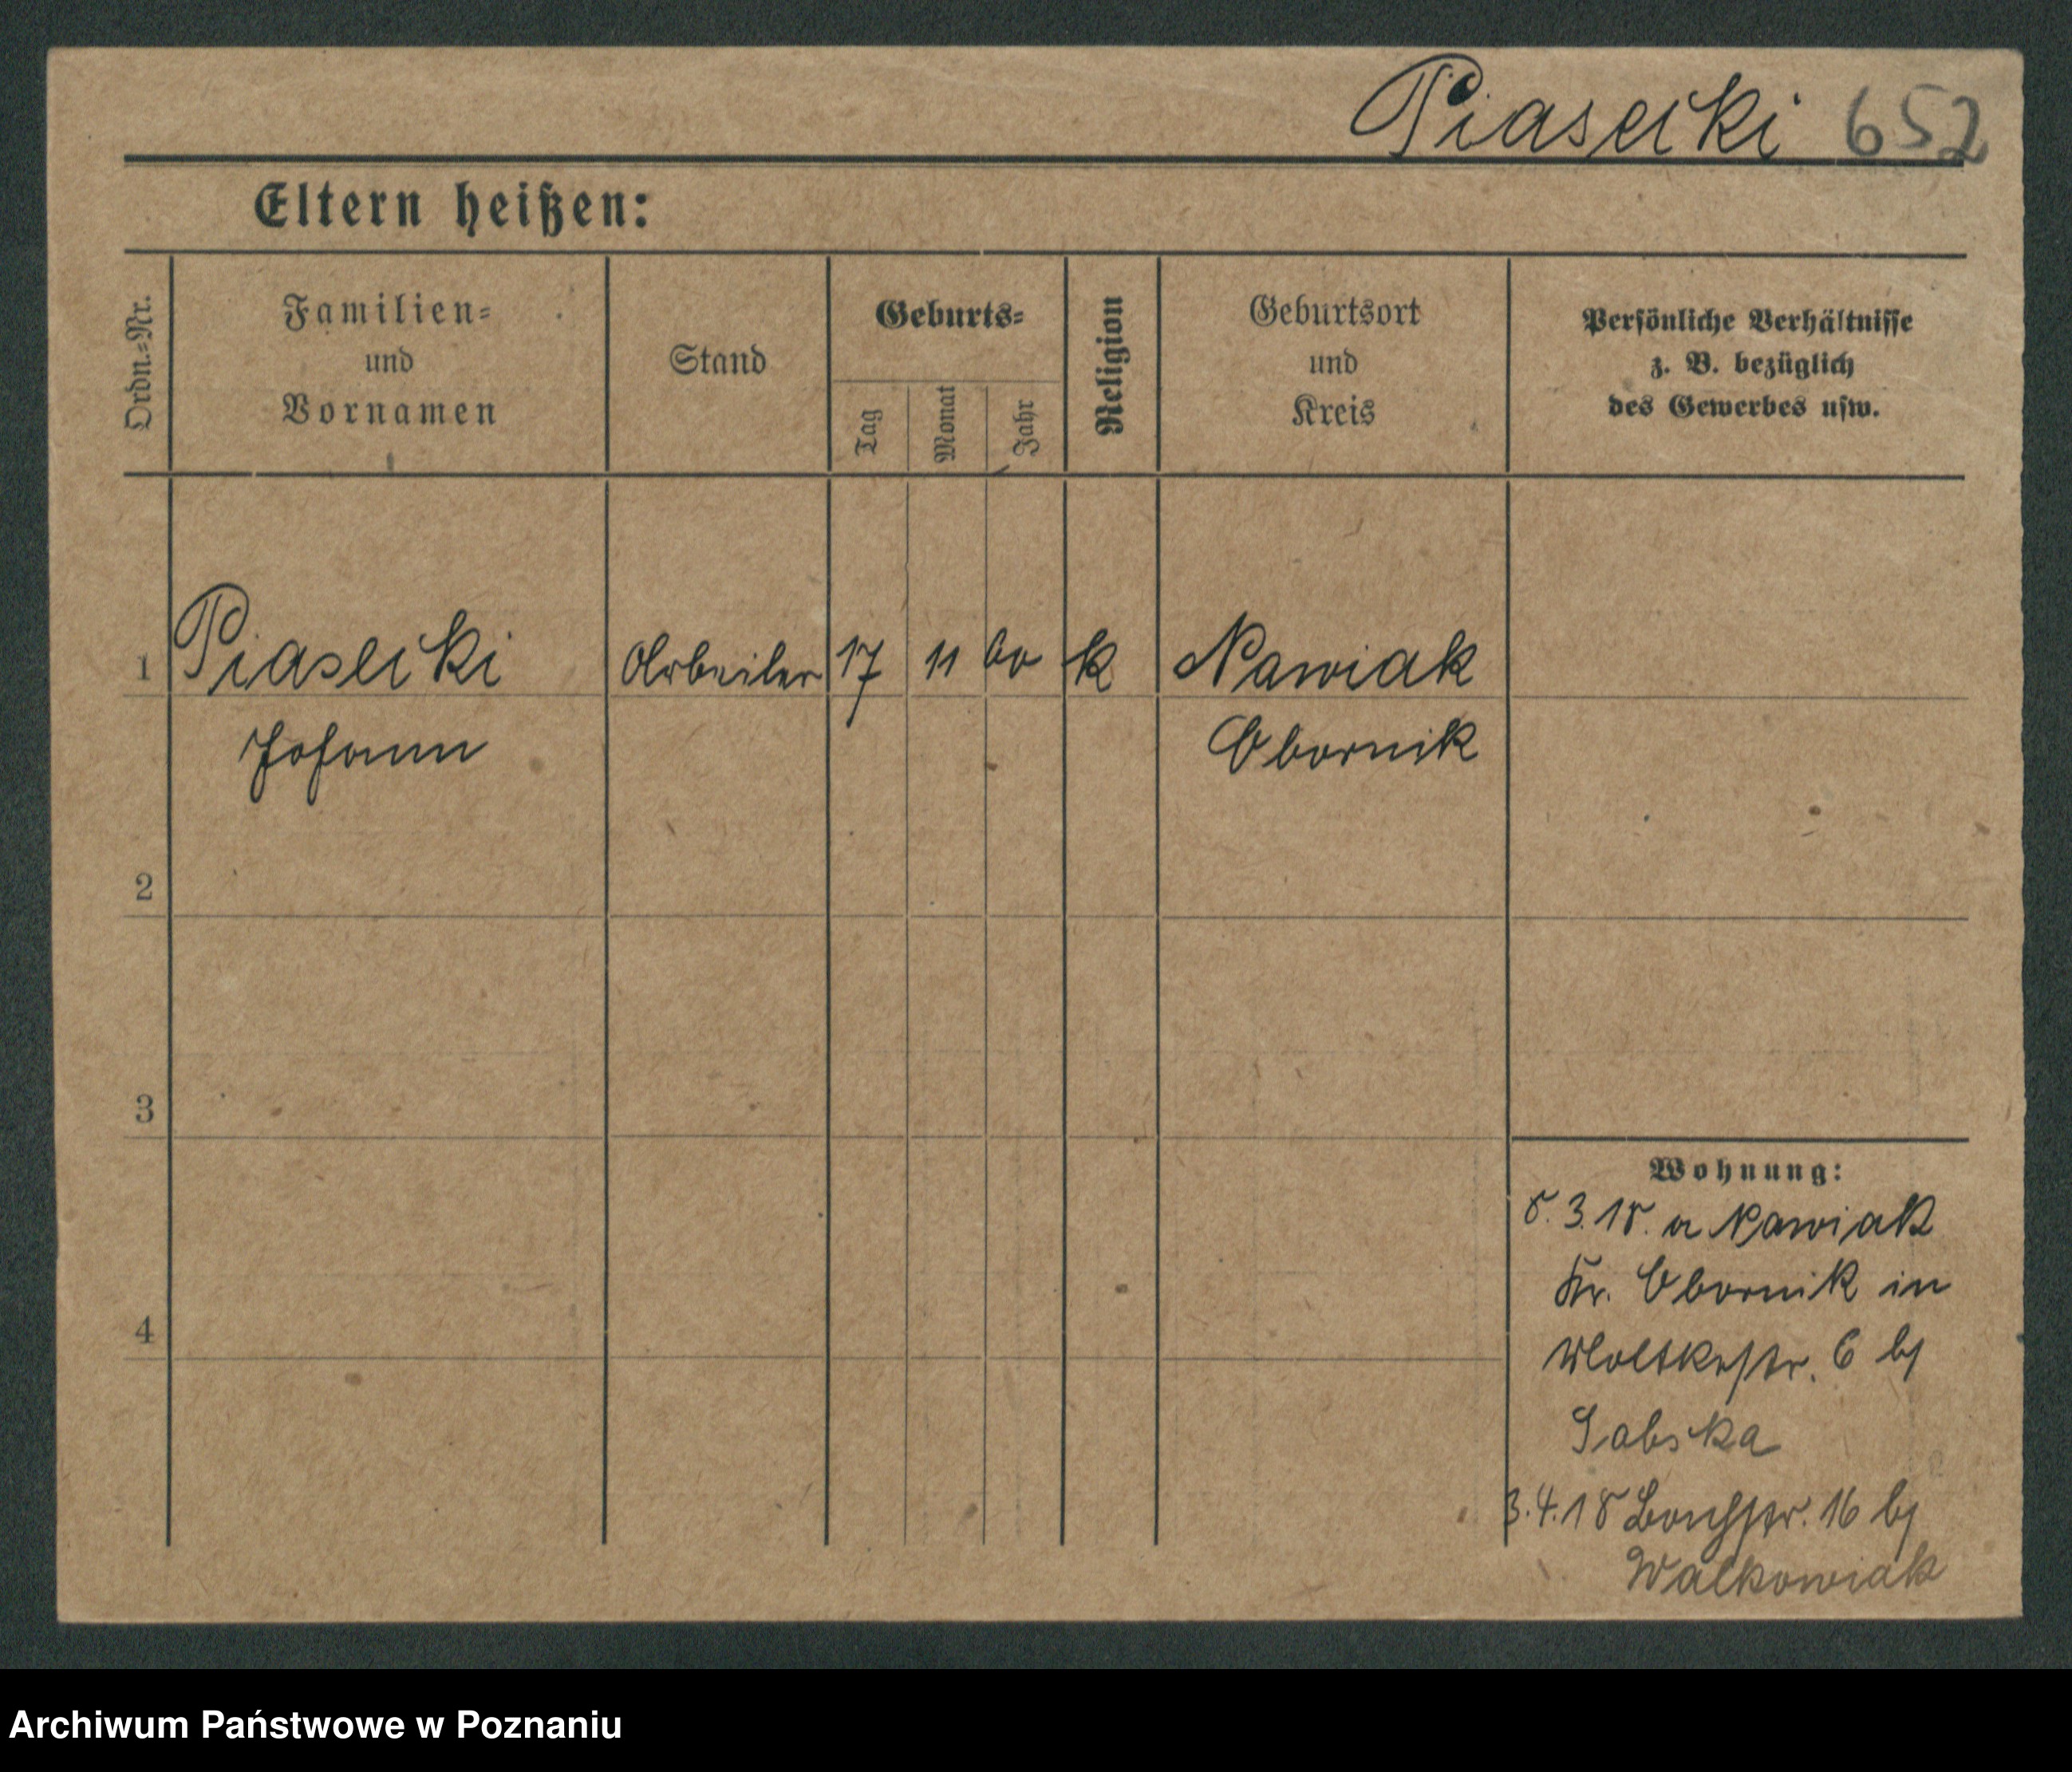 Piasecki 652
Eltern heißen:
Ordn.=Nr.
Familien=
und
Vornamen
Stand
Geburts=
Tag
Monat
Jahr
Religion
Geburtsort
und
Kreis
Persönliche Verhältnisse
z. B. bezüglich
des Gewerbes usw.
1 Piasecki Arbeiter 17 11 60 k Nawiak
Johann Obornik
2
3
4
Wohnung:
8. 3. 18. a Nawiak
Kr. Obornik in
Moltkestr. 6 bj
3.4.18 16 bj
Walkowiak
Archiwum Państwowe w Poznaniu